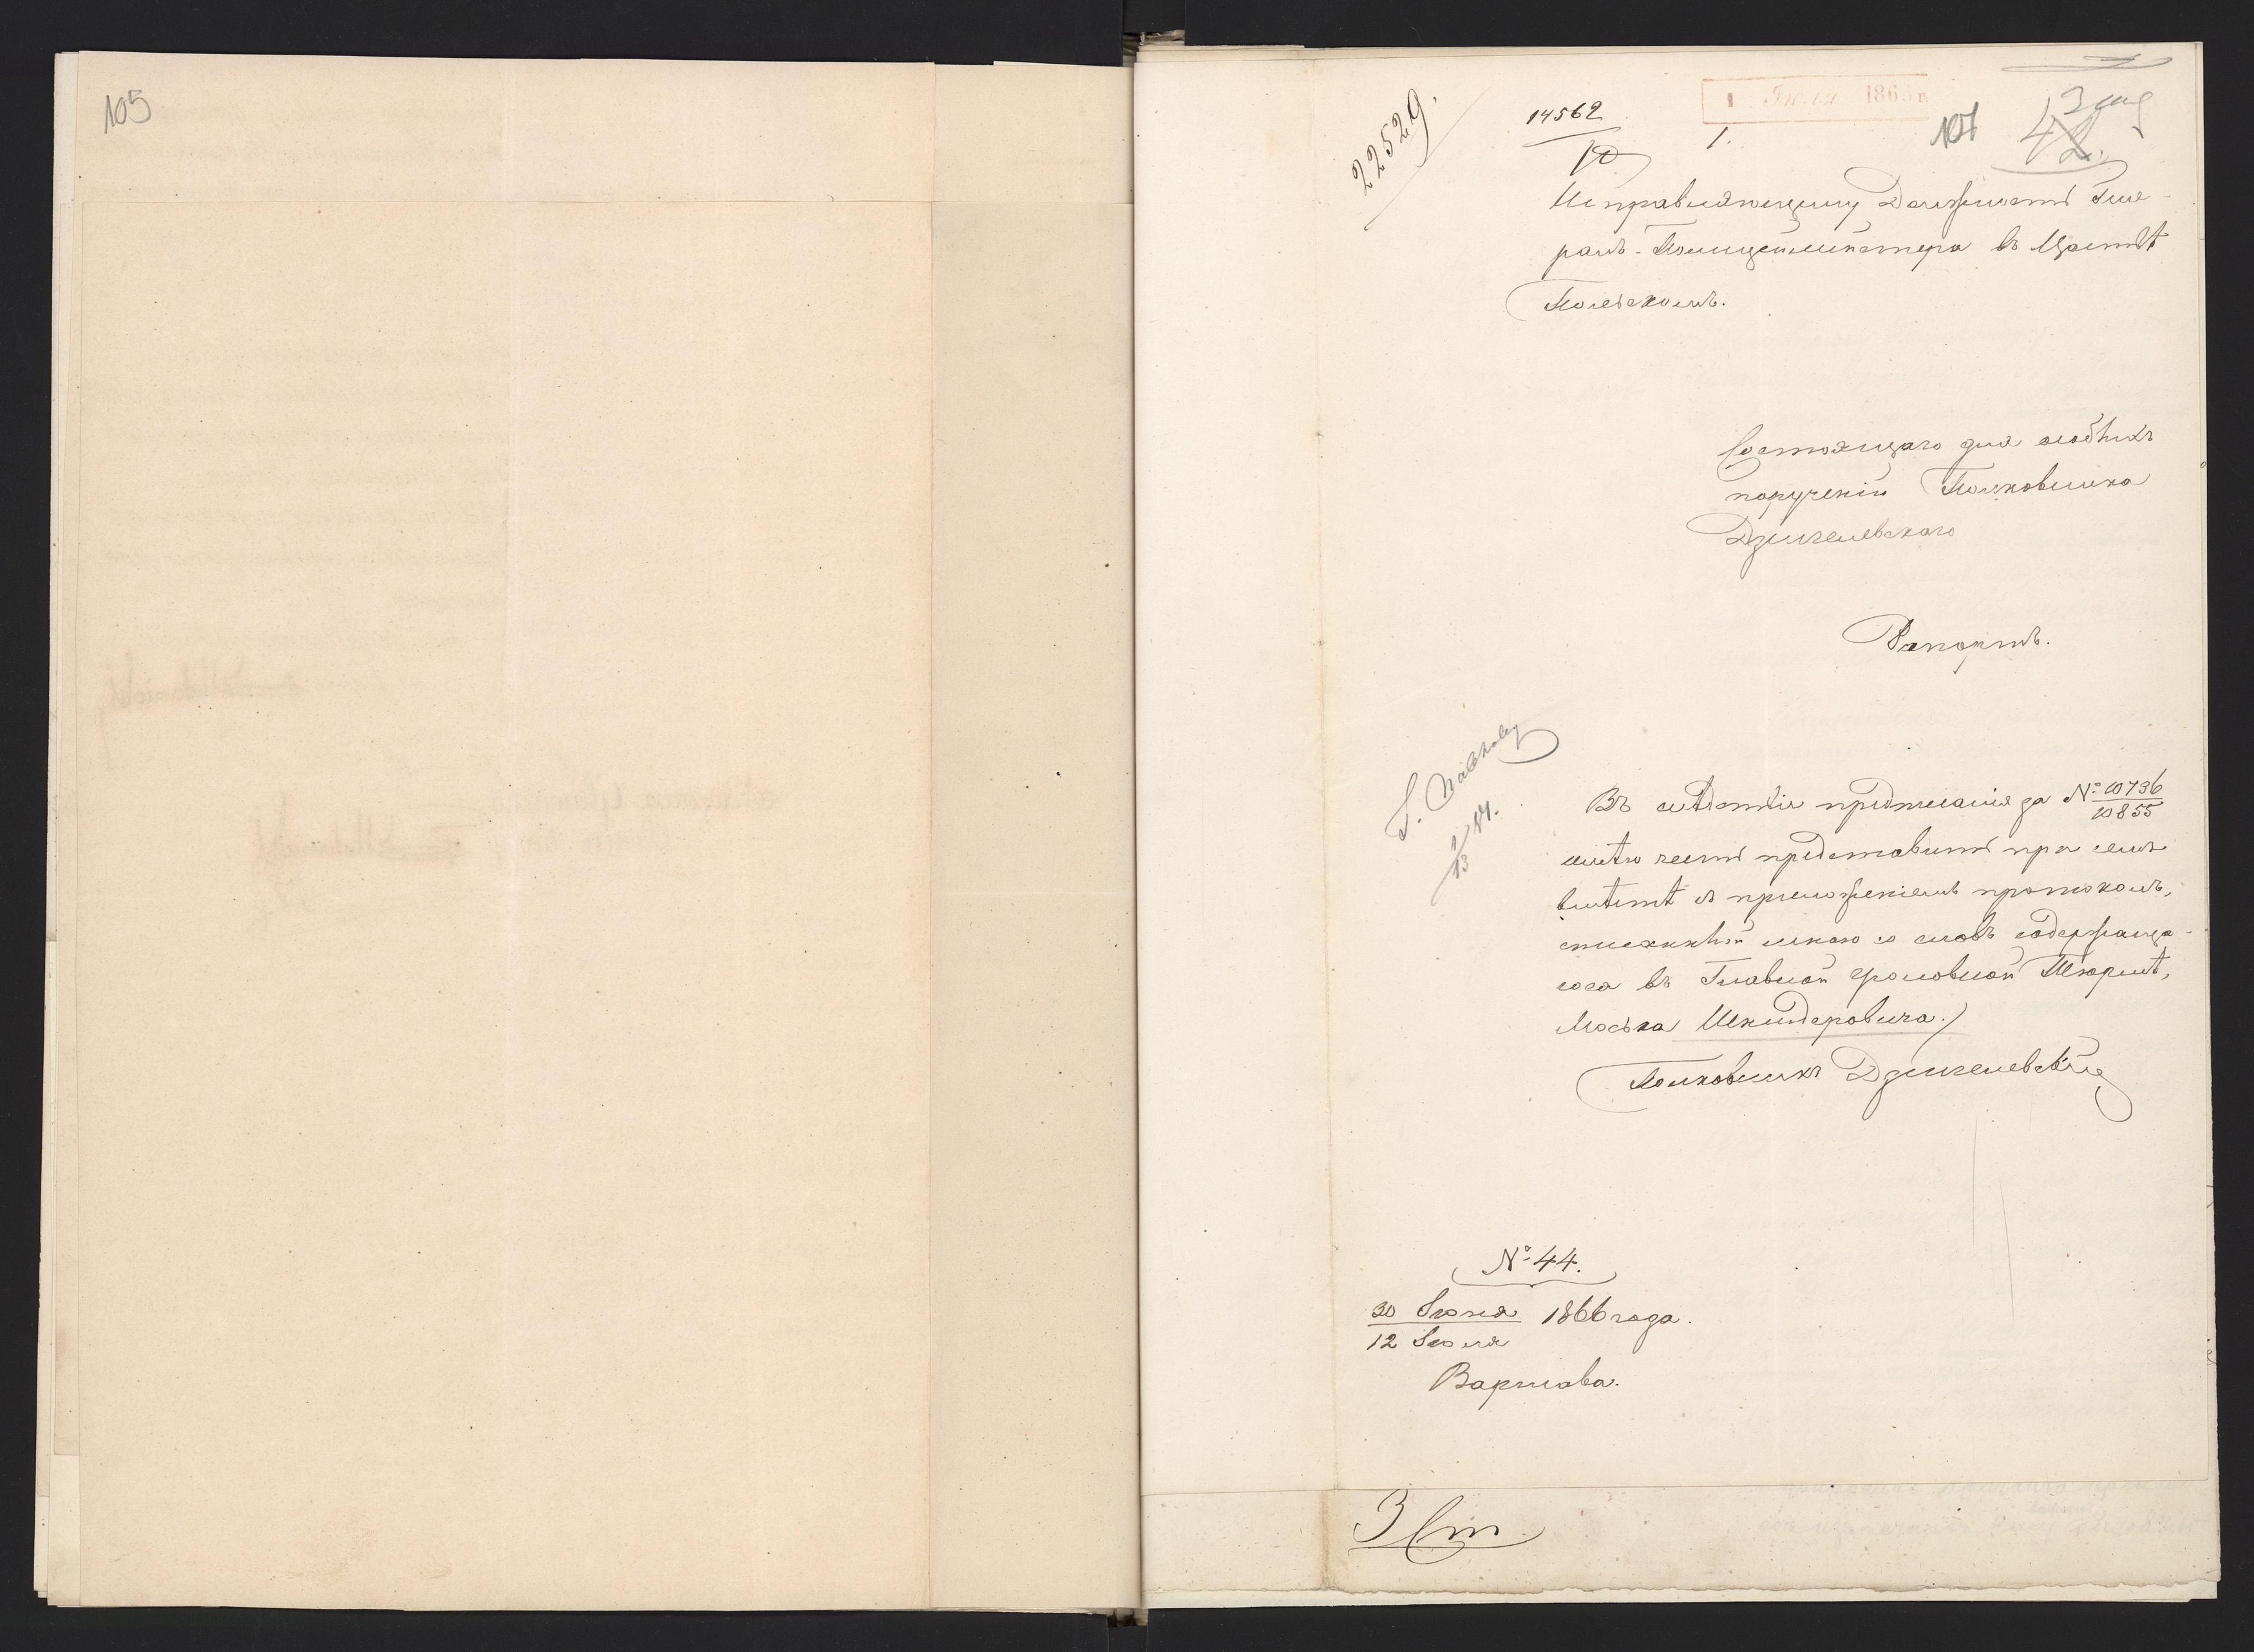 105
22529.
14562
10
1 Июля 186 г
1.
107
42.
Исправляющему Должность Гене-
ралъ-Полицеймейстера въ Царствѣ
Польскомъ.
Состоящаго для особыхъ
порученій Полковника
Дзичелевскаго
Рапортъ.
1/13
Въ слѣдствіе предписанія за №: 10736
10855
имѣю честь представить при семъ
вмѣстѣ съ приложеніемъ протоколъ,
снисанный мною со словъ содержаща-
гося въ Главной уголовной Тюрьмѣ,
Моська Шкиндеровича.
Полковникъ Дзичелевскій
№ 44.
30 Іюня 1866 года.
12 Іюля
Варшава.
3 Cm